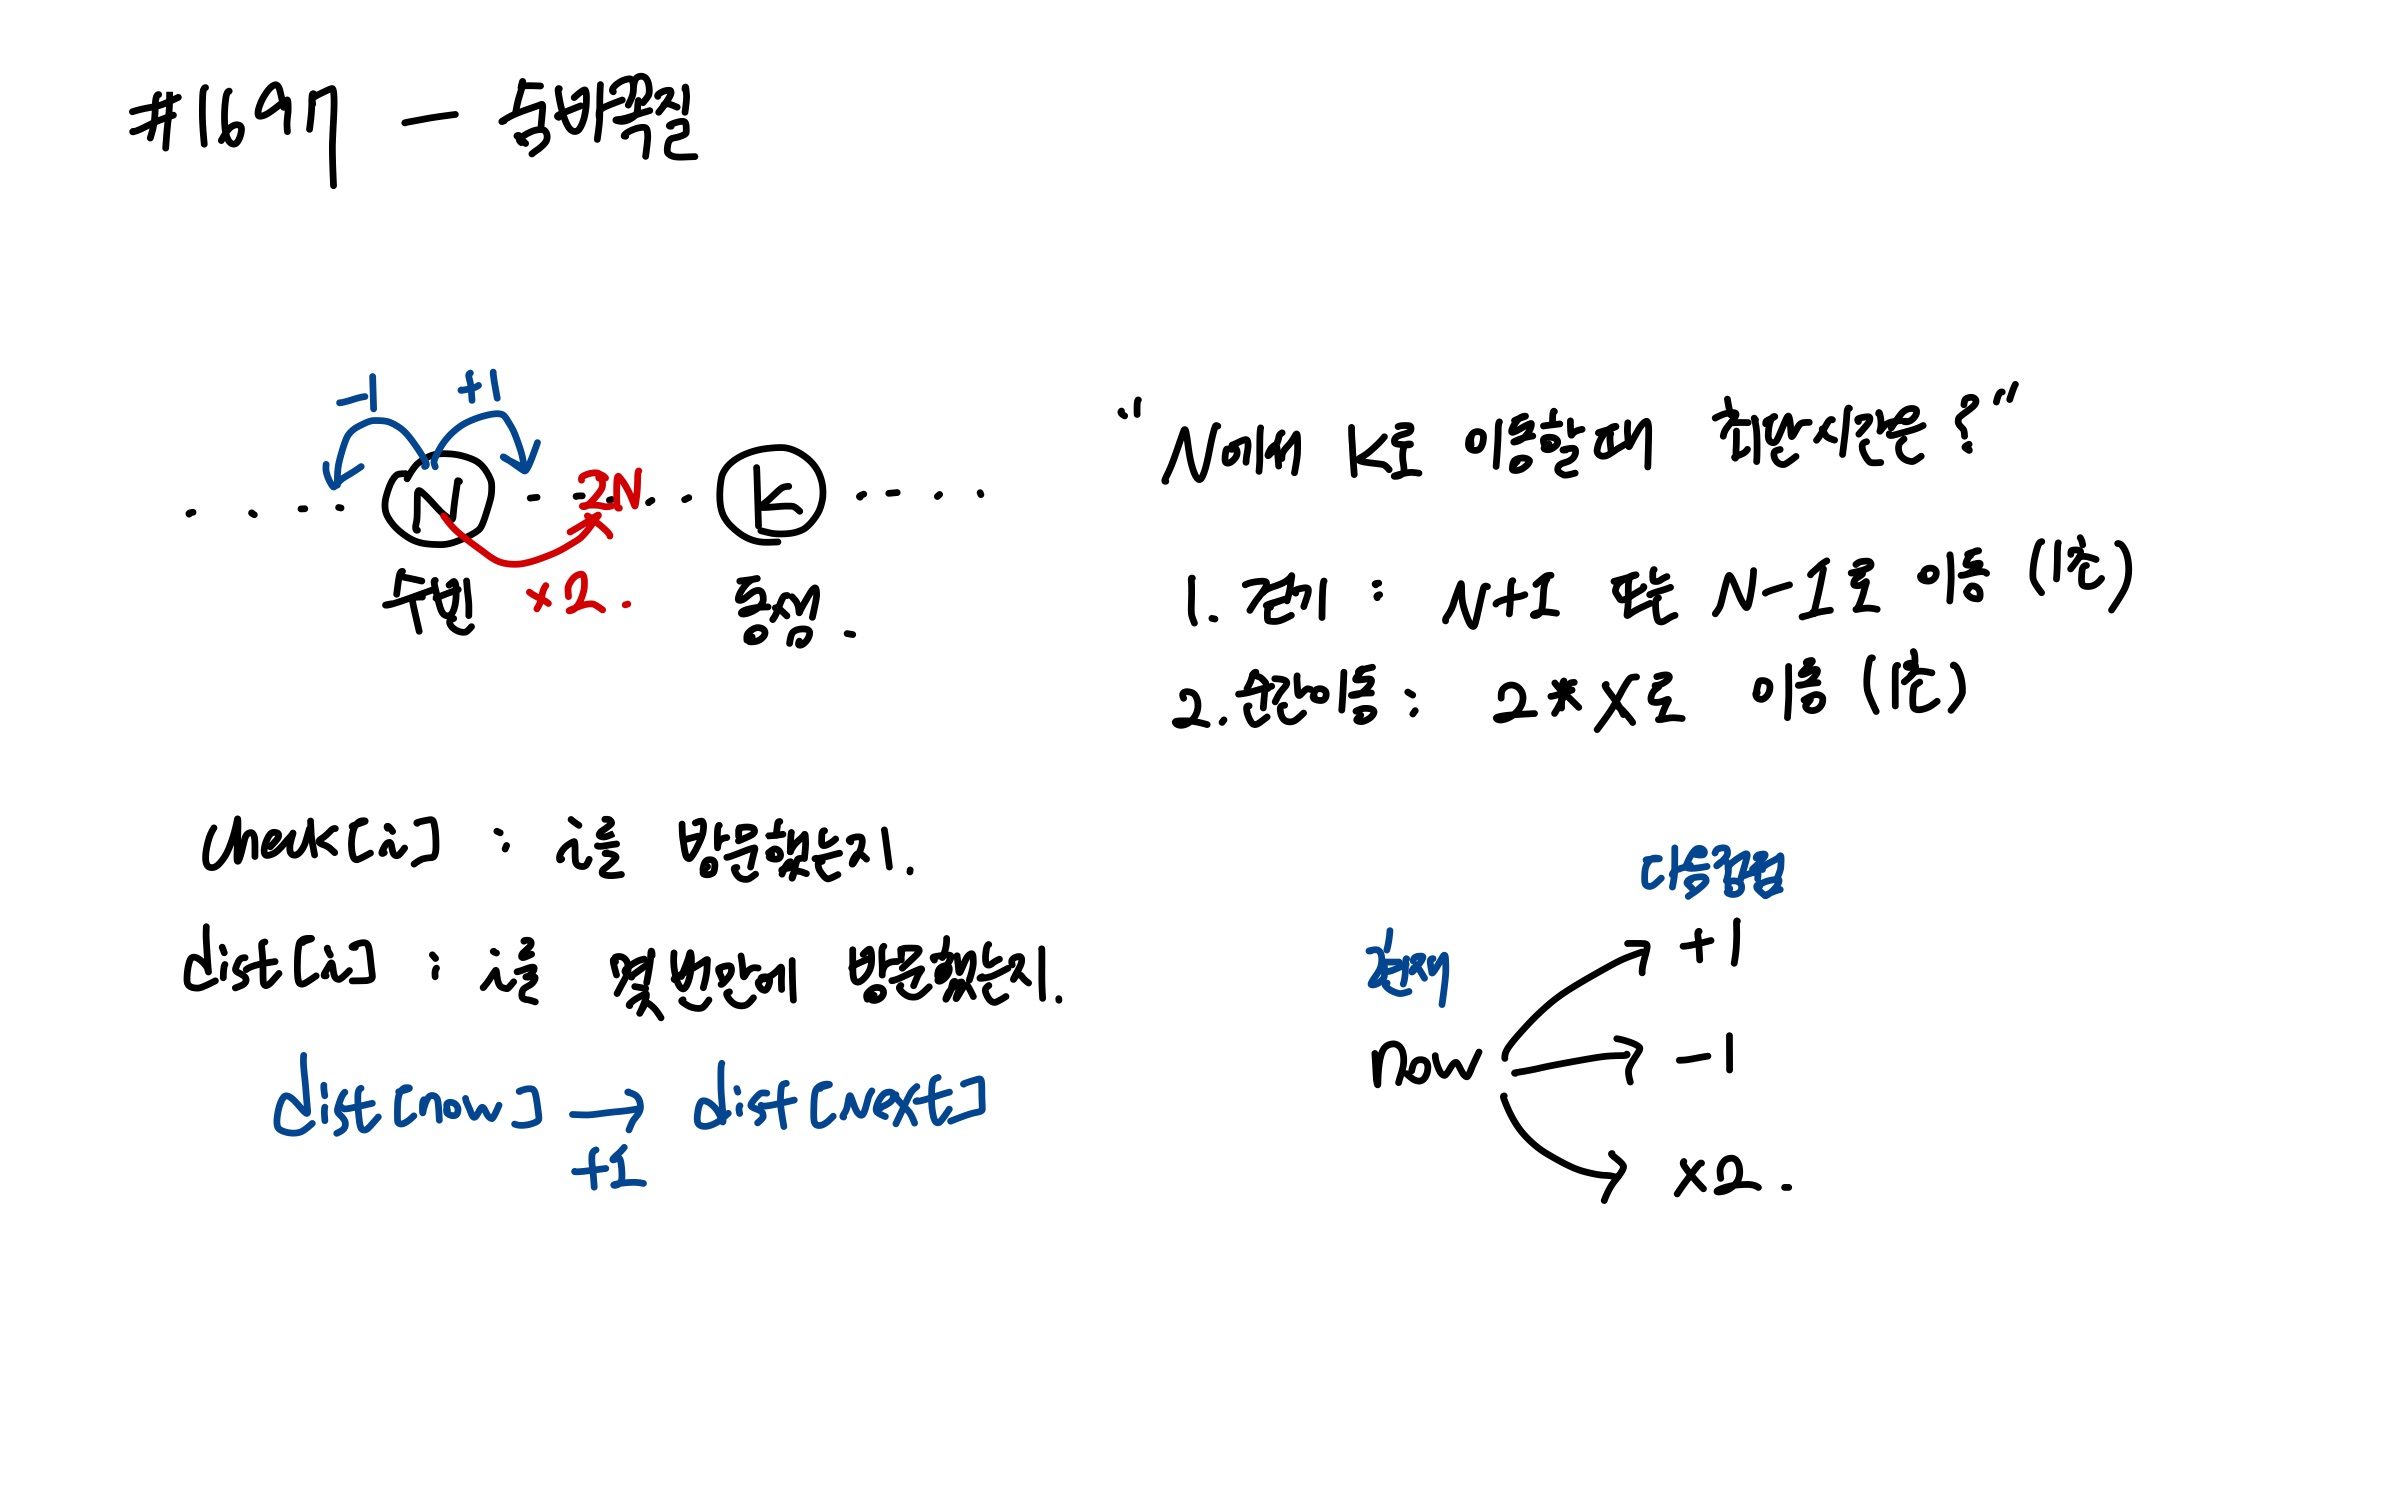 #1697 — 숨바꼭질
-1 +1
N 2N K
수빈 x2. 동생.
"N에서 K로 이동할 때 최소시간은?"
1. 걷기 : N+1 또는 N-1로 이동 (1초)
2. 순간이동 : 2*X로 이동 (1초)
check[i] : i를 방문했는지.
dist[i] : i를 몇번만에 방문했는지.
dist[now] → dist[next]
+1
다음정점
현재
now
+1
-1
x2.